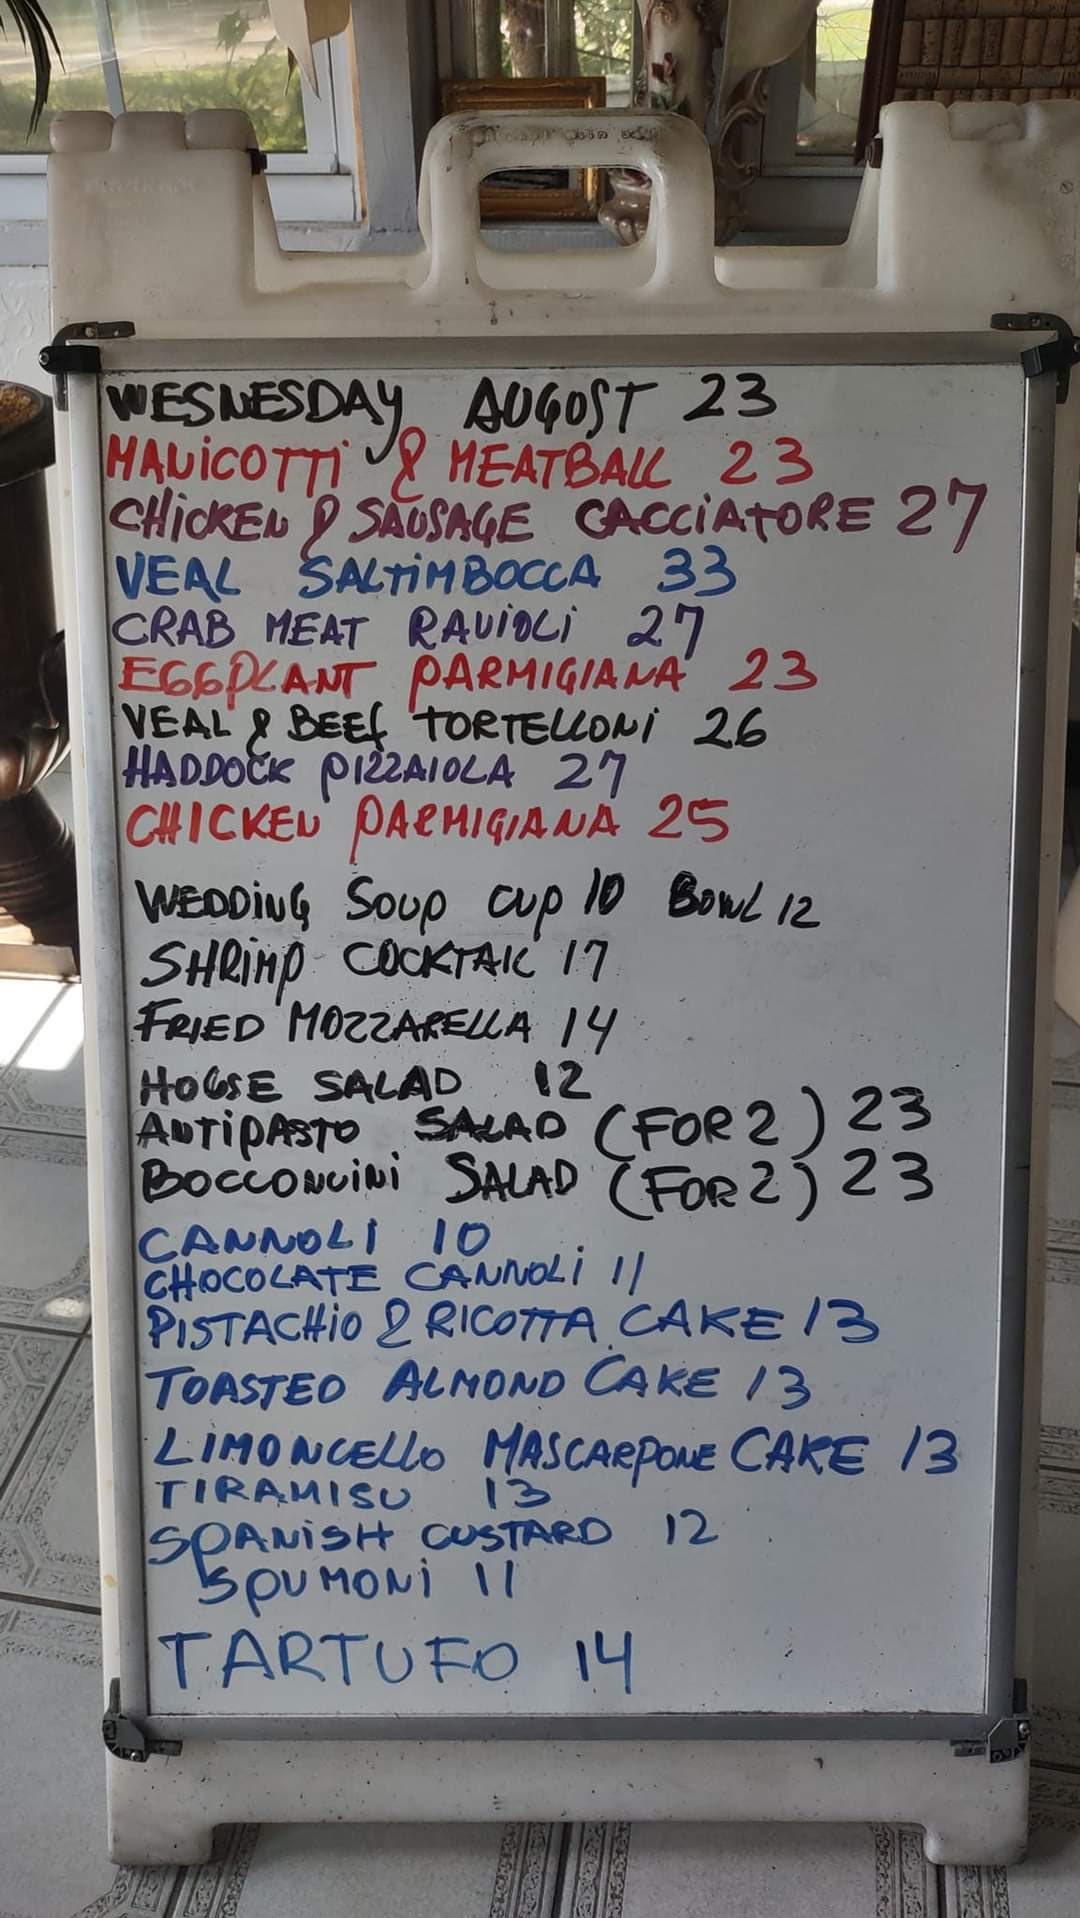 WESNESDAY AUGUST 23
MANICOTTI & MEATBALL 23
CHICKEN & SAUSAGE CACCIATORE 27
VEAL SALTIMBOCCA 33
CRAB MEAT RAVIOLI 27
EGGPLANT PARMIGIANA 23
VEAL & BEEF TORTELLONI 26
HADDOCK PIZZAIOLA 27
CHICKEN PARMIGIANA 25
WEDDING SOUP CUP 10 BOWL 12
SHRIMP COCKTAIL 17
FRIED MOZZARELLA 14
HOUSE SALAD 12
ANTIPASTO SALAD (FOR 2) 23
BOCCONCINI SALAD (FOR 2) 23
CANNOLI 10
CHOCOLATE CANNOLI 11
PISTACHIO & RICOTTA CAKE 13
TOASTED ALMOND CAKE 13
LIMONCELLO MASCARPONE CAKE 13
TIRAMISU 13
SPANISH CUSTARD 12
SPUMONI 11
TARTUFO 14